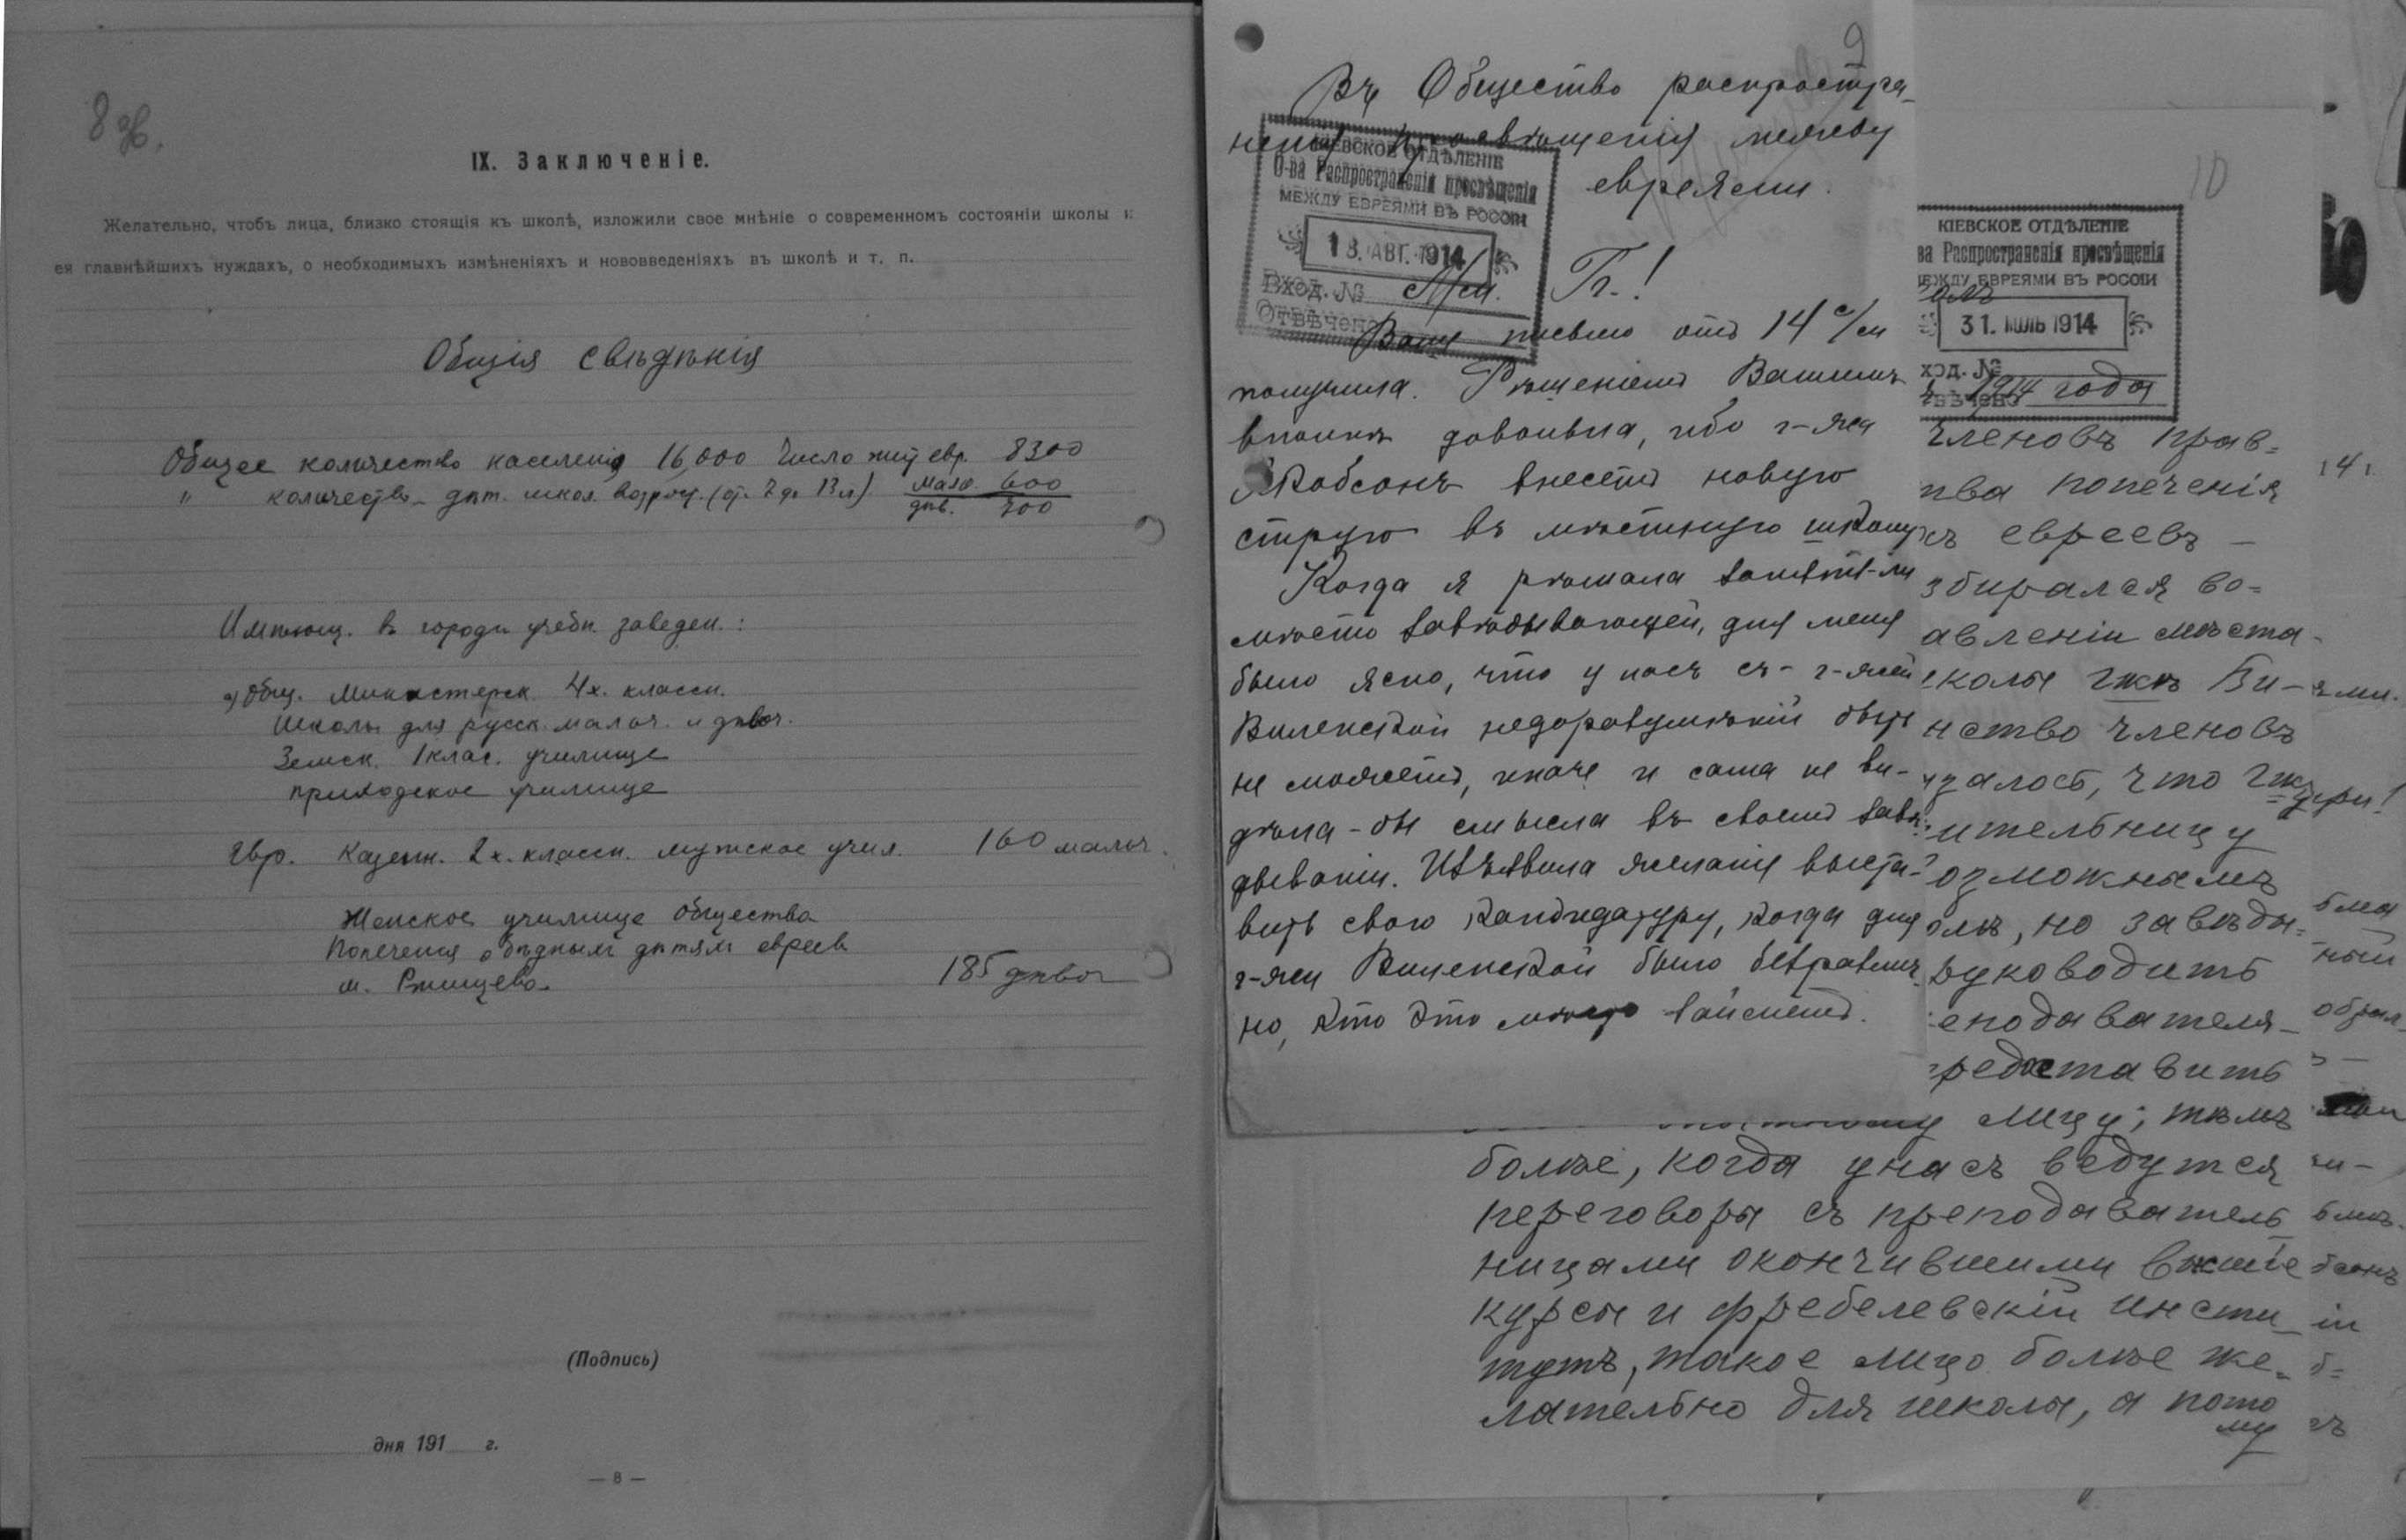 8 об.
IX. Заключеніе.
Желательно, чтобъ лица, близко стоящія къ школѣ, изложили свое мнѣніе о современномъ состояніи школы и
ея главнѣйшихъ нуждахъ, о необходимыхъ измѣненіяхъ и нововведеніяхъ въ школѣ и т. п.
Общія свѣдѣнія
Общее количество населенія 16,000 Число жит. евр. 8300
" количество дѣт. школ. возраст. (от 7 до 13 л.) мальч. 600
дѣв. 700
Имѣющ. въ городѣ учебн. заведен.:
а) Общ. Министерск. 4х. классн.
Школы для русск. мальч. и дѣвоч.
Земск. 1 клас. училище
приходское училище
Евр. Казенн. 2х. классн. мужское учил. 160 мальч.
Женское училище Общества
Попеченія о бѣдныхъ дѣтяхъ евреевъ
м. Ржищева 185 дѣвоч
(Подпись)
дня 191 г.
— 8 —
9
Въ Общество распростра-
ненія просвѣщенія между
евреями.
КІЕВСКОЕ ОТДѢЛЕНІЕ
О-ва Распространенія просвѣщенія
МЕЖДУ ЕВРЕЯМИ ВЪ РОССІИ
18. АВГ. 1914
Вход. №
Отвѣчено
Мм. Гг.!
Ваше письмо отъ 14 с/м
получила. Рѣшеніемъ Вашимъ
вполнѣ довольна, ибо г-жа
Якобсонъ внесетъ новую
струю въ мѣстную школу
Когда я рѣшала занять-ли
мѣсто завѣдывающей, для меня
было ясно, что у насъ съ г-жей
Виленской недоразумѣній быть
не можетъ, иначе и сама не ви-
дѣла-бы смысла въ своемъ завѣ-
дываніи. Изъявила желаніе выста-
вить свою кандидатуру, когда для
г-жи Виленской было безразлич-
но, кто это мѣсто займетъ.
10
КІЕВСКОЕ ОТДѢЛЕНІЕ
ва Распространенія просвѣщенія
ЕЖДУ ЕВРЕЯМИ ВЪ РОССІИ
31. ІЮЛЬ 1914
ход. №
вѣчено
1914 года
членовъ прав=
тва попеченія
хъ евреевъ —
збирался во=
авленіи мѣста-
колы гжѣ Ви-
нство членовъ
залось, что гжу
ительницу
озможнымъ
олѣ, но завѣды=
руководить
еподавателя-
редоставить
лицу; тѣмъ
болѣе, когда у насъ ведутся
переговоры съ преподаватель
ницами окончившими высшіе
курсы и фребелевскій инсти-
тутъ, такое лицо болѣе же-
лательно для школы, а пото
му
14 г.
ный
ій